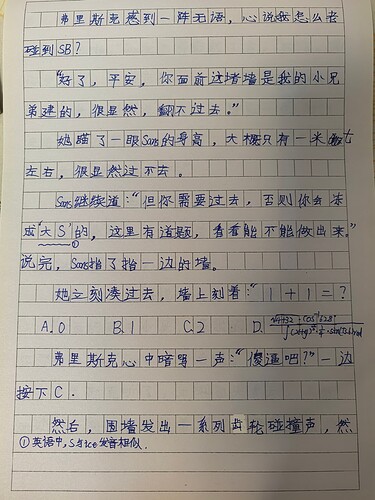 弗里斯克感到一阵无语，心说我怎么老
碰到SB？
“好了，平安。你面前这堵墙是我的小兄
弟建的，很显然，翻不过去。”
她瞄了一眼Sans的身高，大概只有一米七
左右，很显然过不去。
Sans继续道：“但你需要过去，否则你会冻
成“大S”的，这里有道题，看看能不能做出来。”
①
说完，Sans指了指一边的墙。
她立刻凑过去，墙上刻着：“1+1=？
A.0 B.1 C.2 D.
弗里斯克心中暗骂一声：“傻逼吧？”一边
按下C.
然后，围墙发出一系列齿轮碰撞声，然
①英语中，S与ice发音相似.